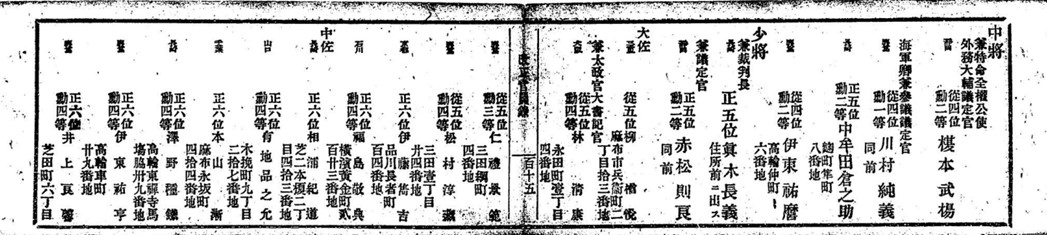 中將
兼特命全權公使
外務大輔議定官
從四位
勳二等
榎本武揚
海軍卿兼參議議定官
從四位
勳一等
川村純義
同前
正五位
勳二等
中牟田倉之助
麴町隼町
八番地
從四位
勳二等
伊東祐麿
高輪仲町
六番地
少將
兼裁判長
正五位眞木長義
住所前ニ出ス
兼議定官
正五位
勳二等
赤松則良
同前
大佐
從五位柳楢悅
麻布市兵衞町二
丁目拾三番地
兼太政官大書記官
從五位
勳四等
林淸康
永田町壹丁目
四番地
改正官員錄
百十五
從五位
勳三等
仁禮景範
三田綱町
四番地
從五位
勳四等
松村淳藏
三田壹丁目
廿四番地
正六位伊藤雋吉
品川長者町
正六位
勳四等
福島敬典
橫濱黃金町貳
百廿三番地
中佐
正六位相浦紀道
芝二本榎二丁
目四拾三番地
正六位
勳四等
有地品之允
木挽町九丁目
二拾七番地
正六位本山漸
麻布永坂町
四拾四番地
正六位
勳四等
澤野種鐵
高輪東禪寺馬
場脇卅九番地
正六位
勳四等
伊東祐亨
高輪車町
廿九番地
正六位
勳四等
井上良馨
芝田町六丁目